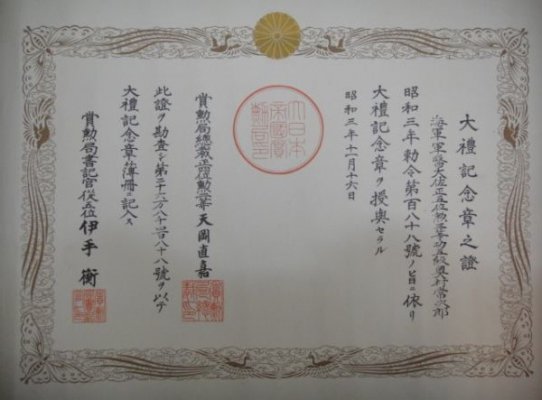 大禮記念章之證
海軍軍醫大佐正五位勲等功級奥村常次郎
昭和三年勅令第百八十八號ノ旨ニ依リ
大禮記念章ヲ授與セラル
昭和三年十一月十六日
大日本帝國賞勲局印
賞勲局總裁正位勲等 天岡直嘉
此證ヲ勘査シ第二十二万八千百八十八號ヲ以テ
大禮記念章簿冊ニ記入ス
賞勲局書記官従五位 伊手 衡